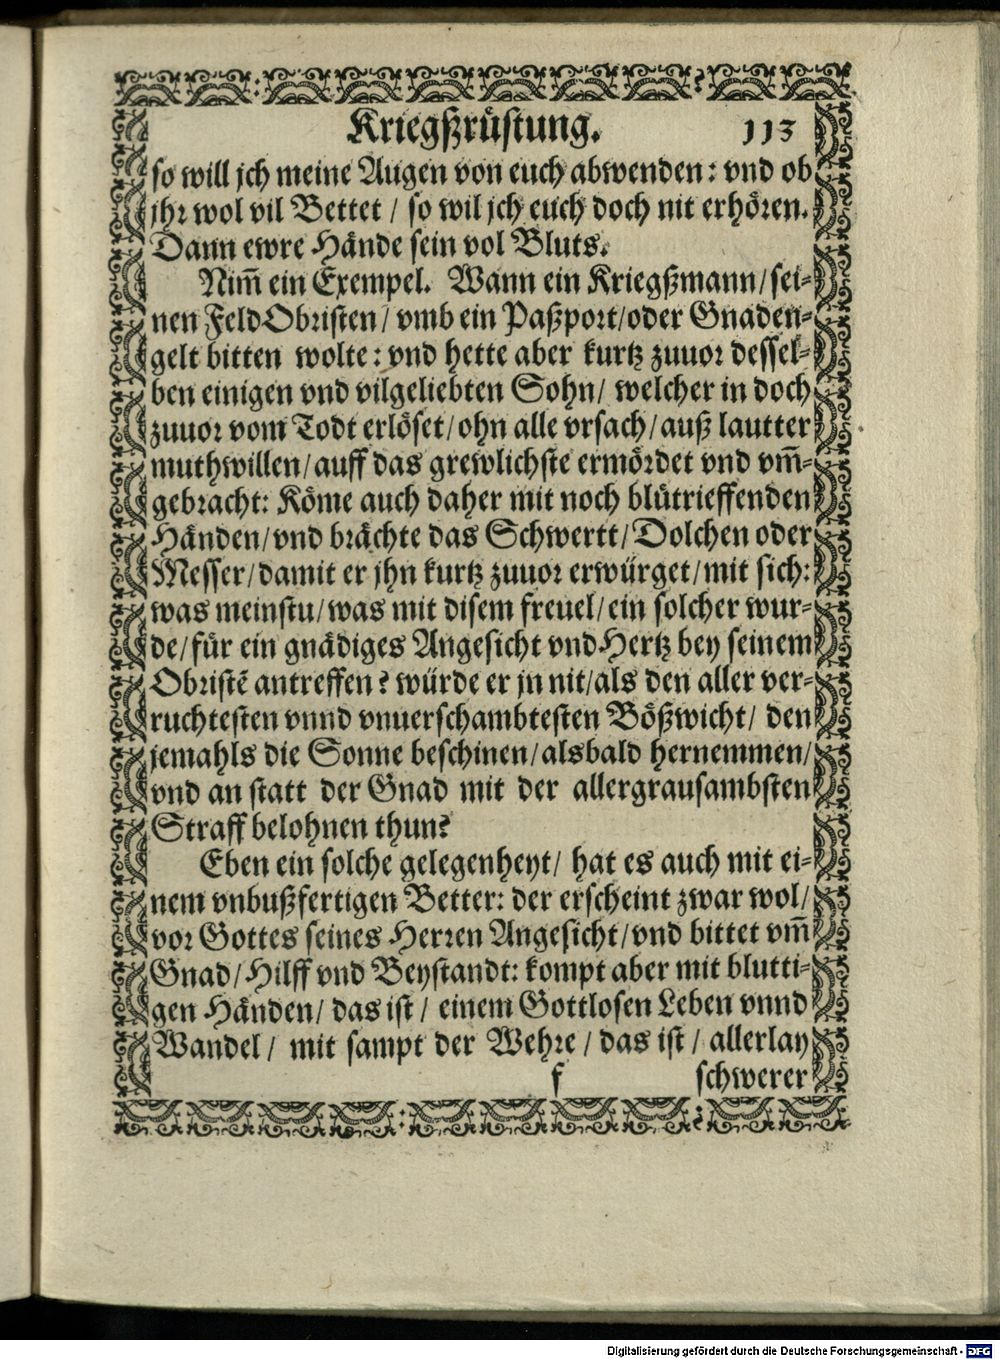 Kriegßrüstung. 113
so will jch meine Augen von euch abwenden: vnd ob
jhr wol vil Bettet / so wil jch euch doch nit erhören.
Dann ewre Hände sein vol Bluts.
Nim̃ ein Exempel. Wann ein Kriegßmann / sei-
nen FeldObristen / vmb ein Paßport / oder Gnaden-
gelt bitten wolte: vnd hette aber kurtz zuuor dessel-
ben einigen vnd vilgeliebten Sohn / welcher in doch
zuuor vom Todt erlöset / ohn alle vrsach / auß lautter
muthwillen / auff das grewlichste ermördet vnd vm̃-
gebracht: Köme auch daher mit noch blütrieffenden
Händen / vnd brächte das Schwertt / Dolchen oder
Messer / damit er jhn kurtz zuuor erwürget / mit sich:
was meinstu / was mit disem freuel / ein solcher wur-
de / für ein gnädiges Angesicht vnd Hertz bey seinem
Obristẽ antreffen? würde er jn nit / als den aller ver-
ruchtesten vnnd vnuerschambtesten Bößwicht / den
jemahls die Sonne beschinen / alsbald hernemmen /
vnd an statt der Gnad mit der allergrausambsten
Straff belohnen thun?
Eben ein solche gelegenheyt / hat es auch mit ei-
nem vnbußfertigen Better: der erscheint zwar wol /
vor Gottes seines Herren Angesicht / vnd bittet vm̃
Gnad / Hilff vnd Beystandt: kompt aber mit blutti-
gen Händen / das ist / einem Gottlosen Leben vnnd
Wandel / mit sampt der Wehre / das ist / allerlay
f schwerer
Digitalisierung gefördert durch die Deutsche Forschungsgemeinschaft - DFG